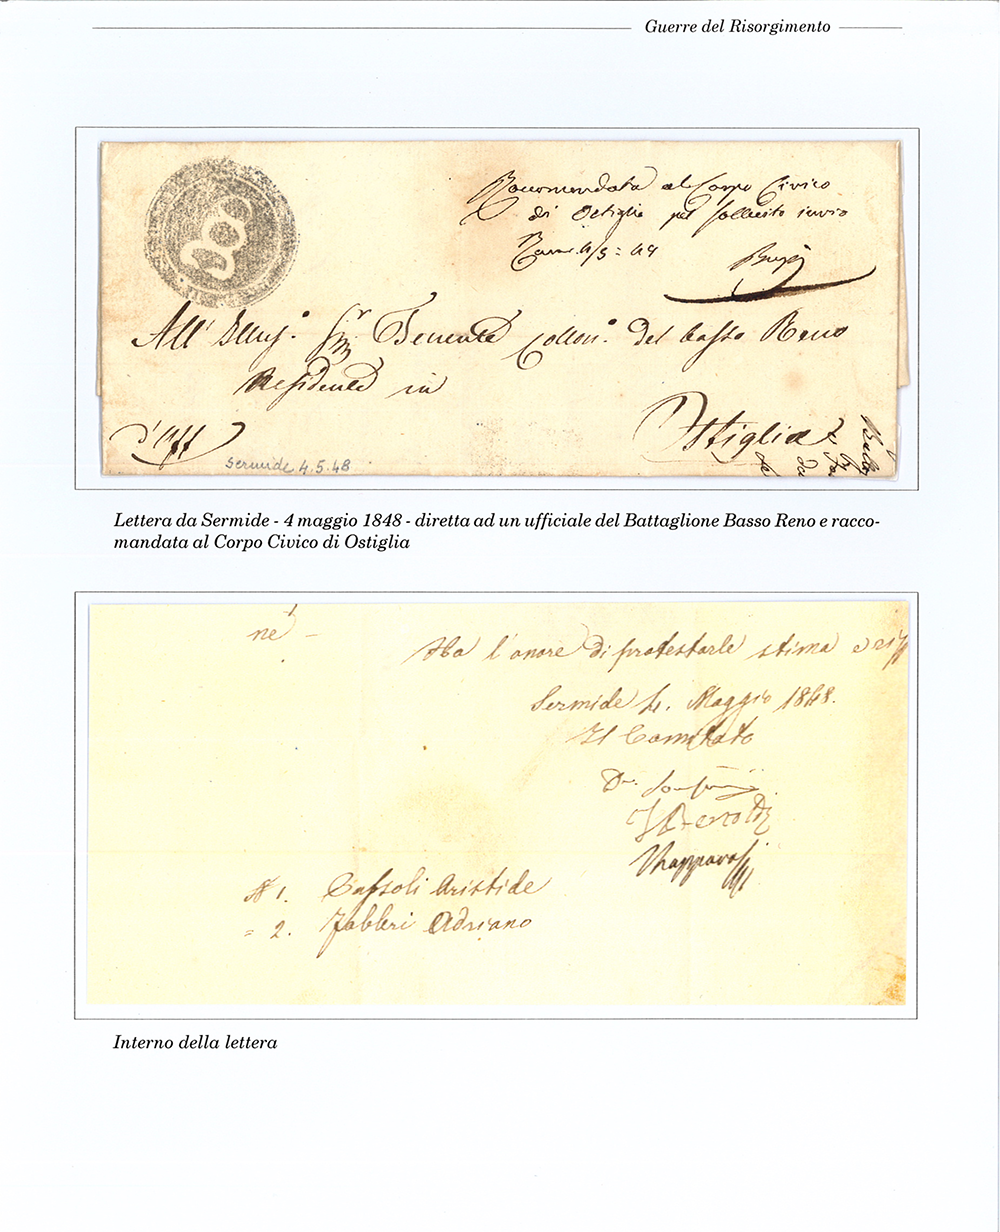 Guerre del Risorgimento
Raccomandata al Corpo Civico
di Ostiglia pel sollecito invio
4/5
All' Illus.º Sig.r Tenente Collon.º del basso Reno
Residente in
Ostiglia
d'Uff
Sermide 4.5.48
Lettera da Sermide - 4 maggio 1848 - diretta ad un ufficiale del Battaglione Basso Reno e racco-
mandata al Corpo Civico di Ostiglia
né
Ha l'onore di protestarle stima e
Sermide 4. Maggio 1848.
Il Comitato
N 1. Cassoli Aristide
= 2. Fabbri Adriano
Interno della lettera